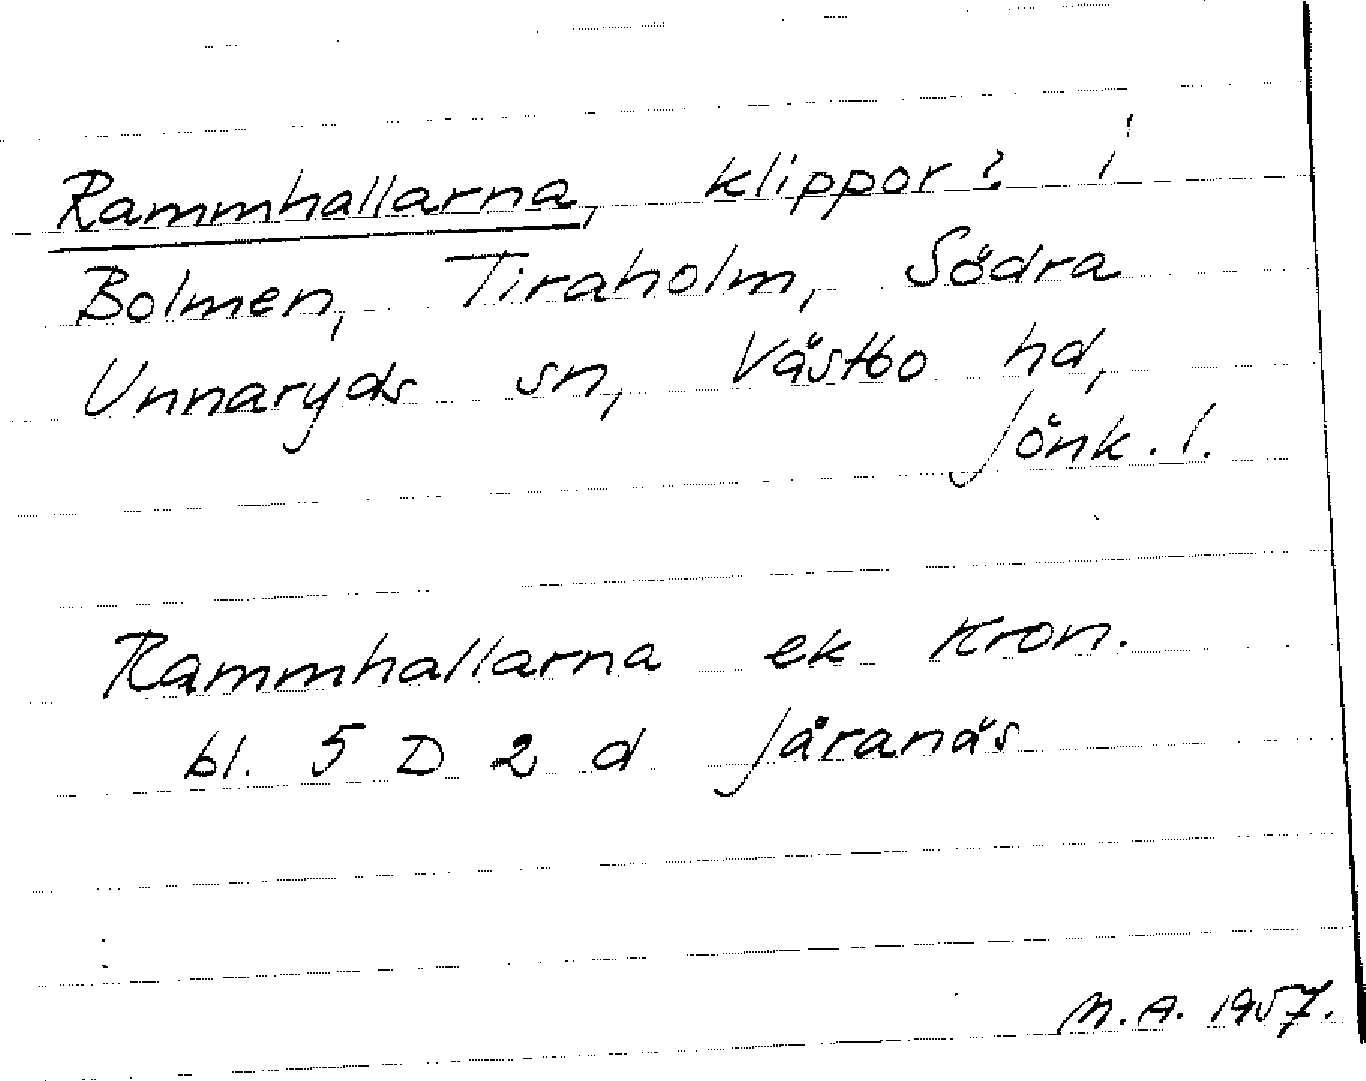 Rammhallarna, klippor? i
Bolmen, Tiraholm, Södra
Unnaryds sn, Västbo hd,
Jönk. l.
Rammhallarna ek Kron.
bl. 5 D 2 d Järanäs
M.A. 1957.